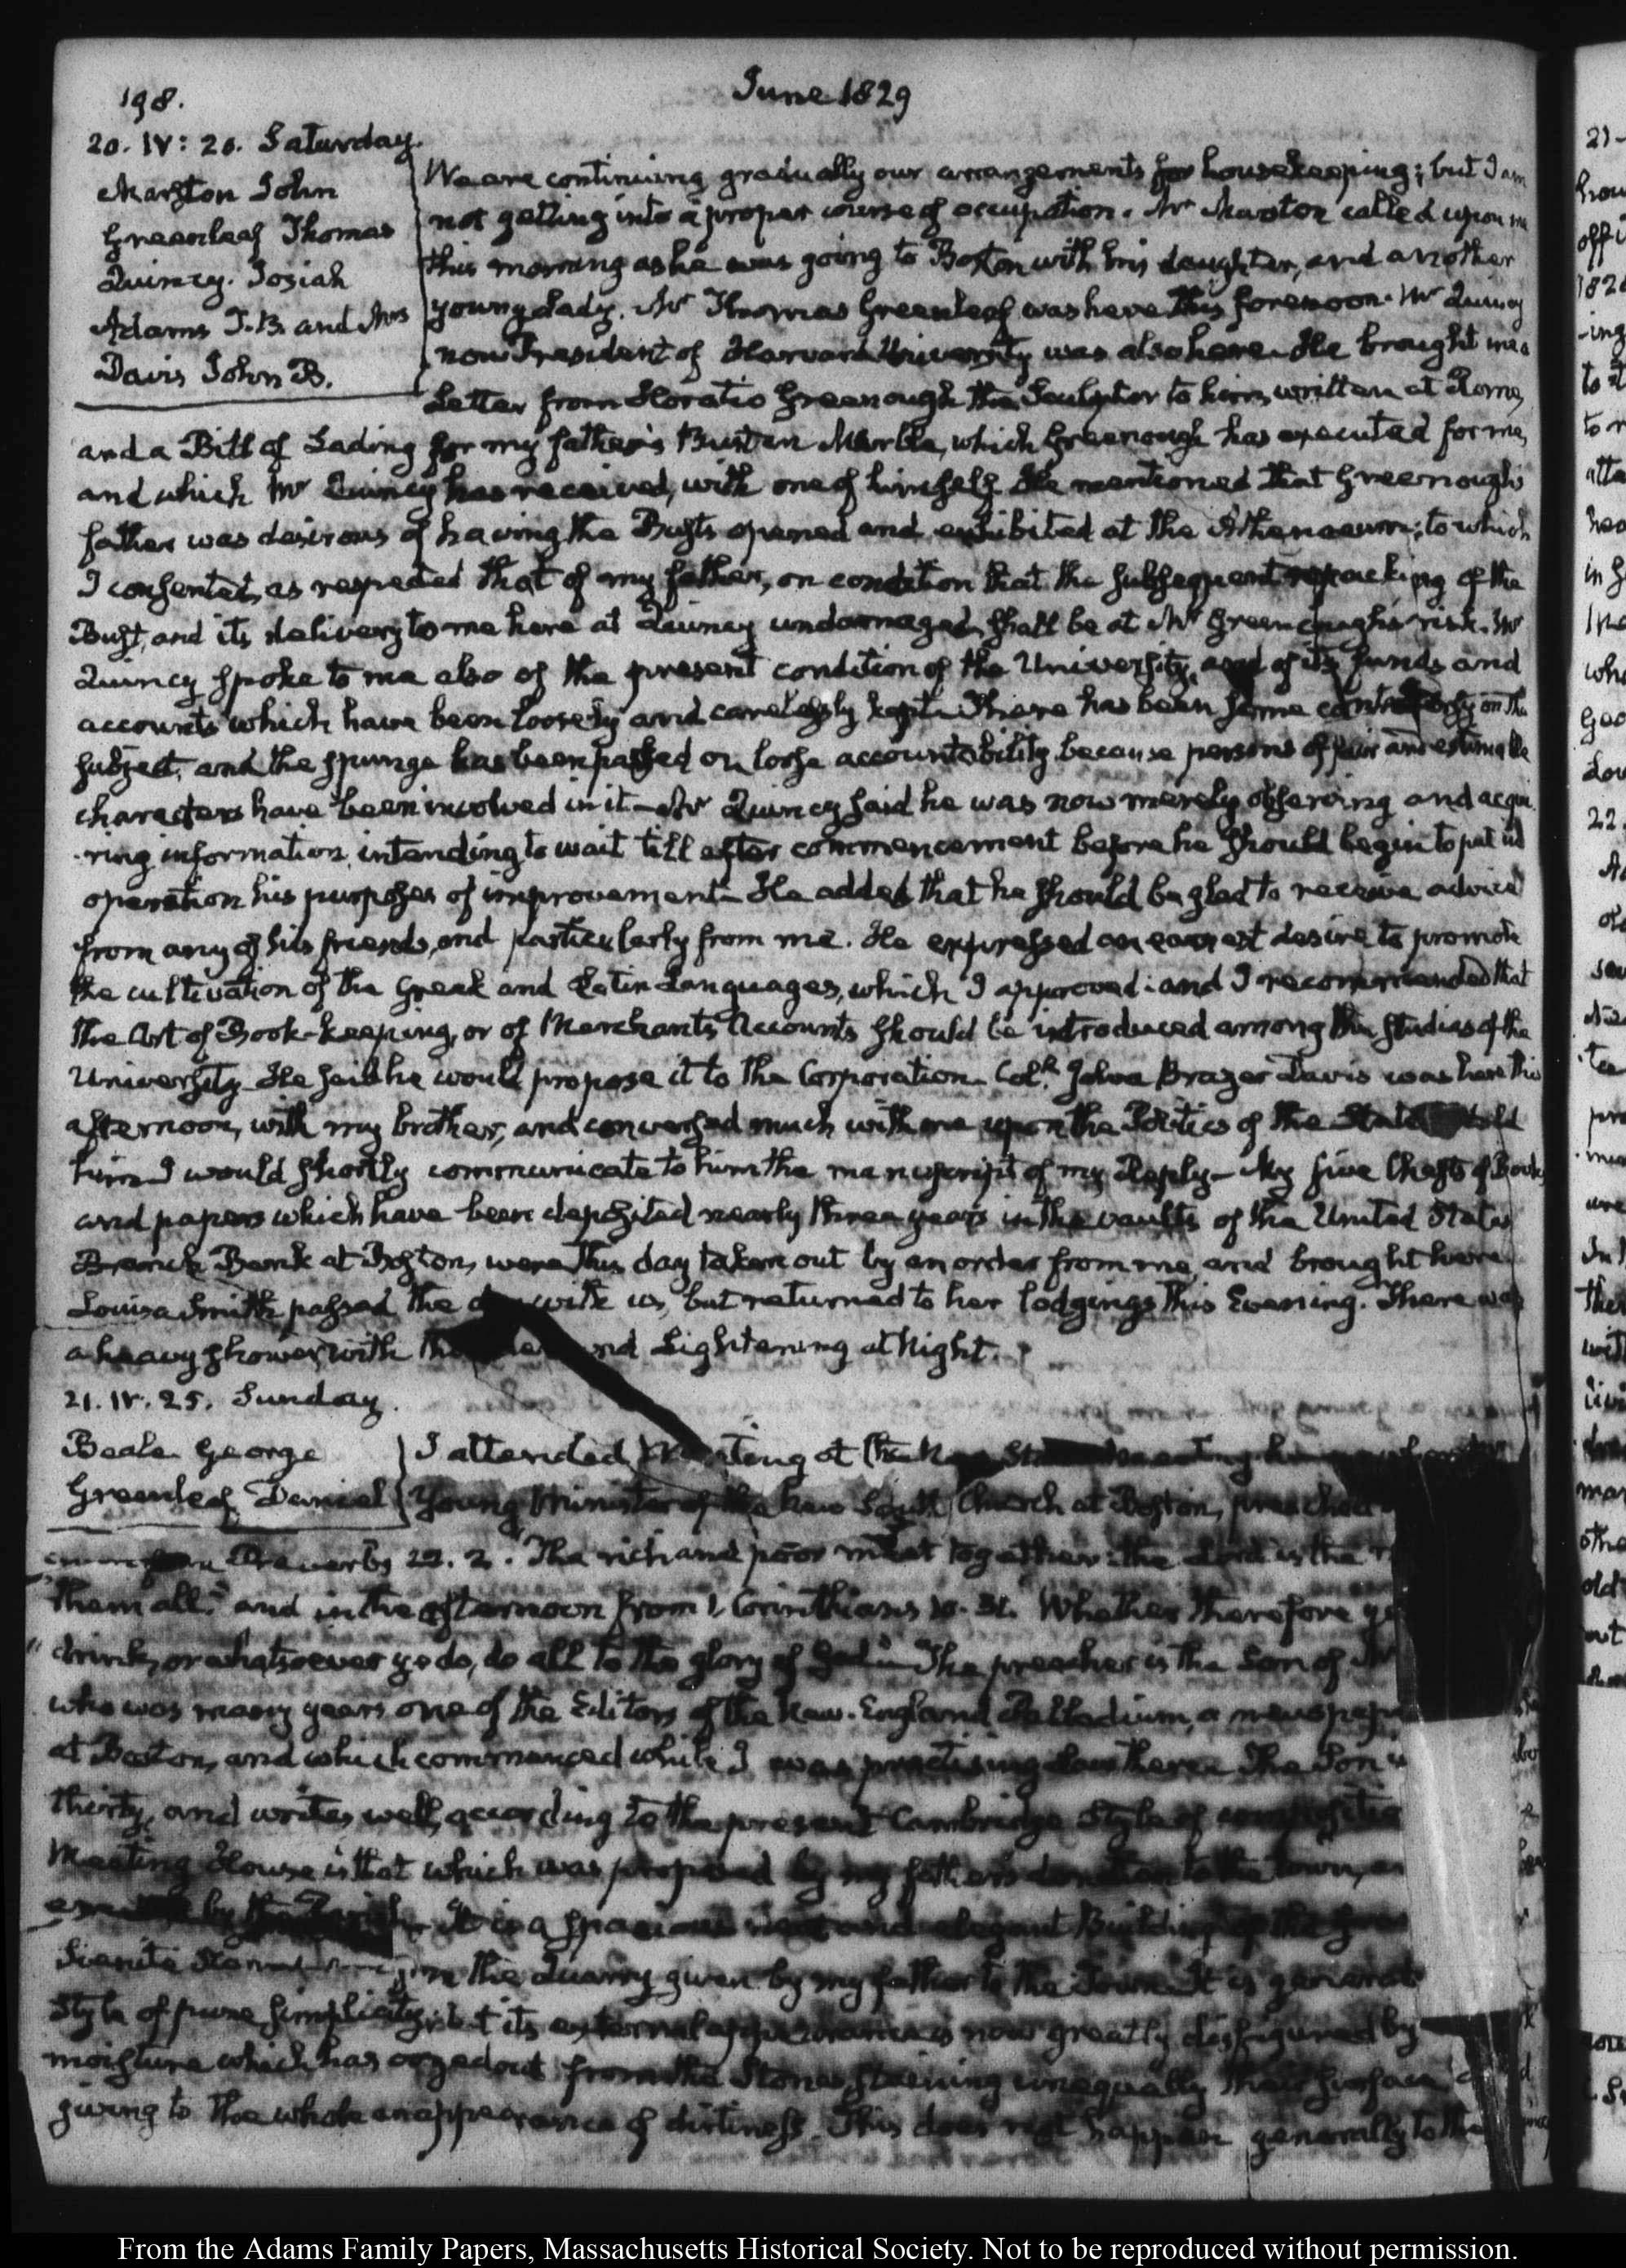 198.
June 1829
20. IV: 20. Saturday.
Marston John
Greenleaf Thomas
Quincy. Josiah
Adams T. B. and Mrs
Davis John B.
We are continuing gradually our arrangements for housekeeping; but I am
not getting into a proper course of occupation. Mr Marston called upon me
this morning as he was going to Boston with his daughter, and another
young Lady. Mr Thomas Greenleaf was here this forenoon. Mr Quincy
now President of Harvard University was also here. He brought me a
Letter from Horatio Greenough the Sculptor to him, written at Rome,
and a Bill of Lading for my father's Bust in Marble, which Greenough has executed for me,
and which Mr Quincy has received, with one of himself. He mentioned that Greenough's
father was desirous of having the Busts opened and exhibited at the Athenaeum; to which
I consented, as respected that of my father, on condition that the subsequent repacking of the
Bust, and its delivery to me here at Quincy undamaged, shall be at Mr Greenough's risk. Mr
Quincy spoke to me also of the present condition of the University, and of its funds and
accounts which have been loosely and carelessly kept. There has been some controversy on the
subject, and the spunge has been passed on loose accountability because persons of fair and estimable
characters have been involved in it — Mr Quincy said he was now merely observing and acqui-
-ring information, intending to wait till after commencement before he should begin to put in
operation his purposes of improvement — He added that he should be glad to receive advice
from any of his friends, and particularly from me. He expressed an earnest desire to promote
the cultivation of the Greek and Latin Languages, which I approved: and I recommended that
the Art of Book-keeping, or of Merchants Accounts should be introduced among the studies of the
University. He said he would propose it to the Corporation. Coll. John Brazer Davis was here this
afternoon, with my brother, and conversed much with me upon the Politics of the State told
him I would shortly communicate to him the manuscript of my Reply — My five Chests of Books
and papers which have been deposited nearly three years in the vaults of the United States
Branch Bank at Boston, were this day taken out by an order from me, and brought here.
Louisa Smith passed the with us, but returned to her lodgings this Evening. There was
a heavy shower with and Lightening at Night.
21. IV. 25. Sunday.
Beale George
Greenleaf Daniel
I attended Meeting at the
Young Minister of the New South Church at Boston, preached
Proverbs 22. 2. The rich and poor meet together: the Lord is the
them all." and in the afternoon from 1. Corinthians 10. 31. Whether therefore ye
"drink, or whatsoever ye do, do all to the glory of God" The preacher is the Son of Mr
who was many years one of the Editors of the New-England Palladium, a newspaper
at Boston, and which commenced while I was practising Law there. The Son
thirty, and writes well, according to the present Cambridge Style of composition
Meeting House is that which was by my father's donation to the town,
by the It is a spacious and elegant Building of the
Stone from the Quarry given by my father to the Town. It is
style of pure simplicity; but its external appearance is now greatly disfigured by
moisture which has oozed out from the Stones staining unequally their surface
giving to the whole an appearance of dirtiness. This does not happen generally to the
From the Adams Family Papers, Massachusetts Historical Society. Not to be reproduced without permission.